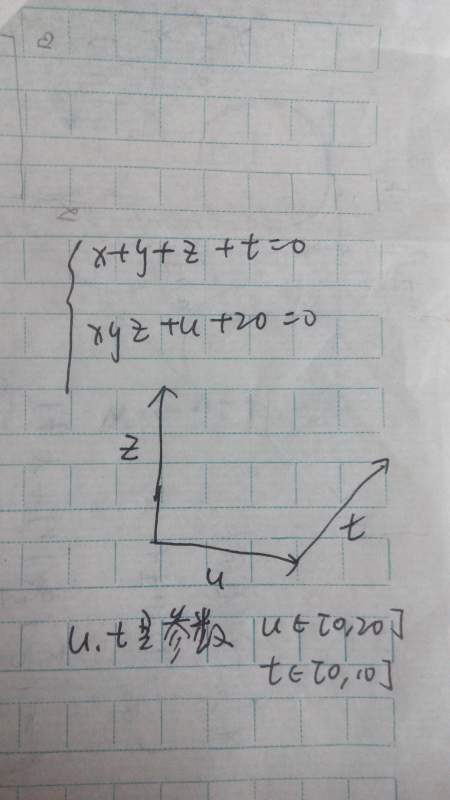 x+y+z+t=0
xyz+u+20=0
z
t
u
u.t是参数 u∈[0,20]
t∈[0,10]